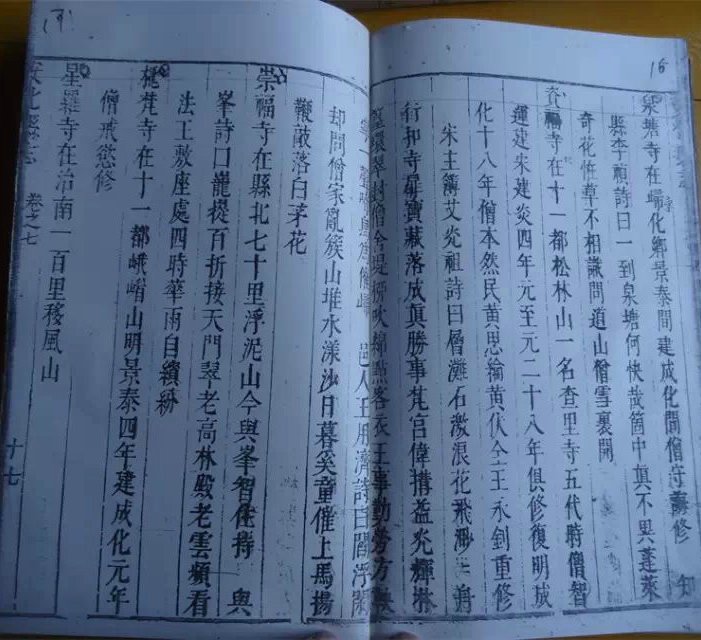 15
泉塘寺在歸化鄉景泰間建成化間僧守壽修 知
縣李禎詩曰一到泉塘何快哉箇中真不異蓬萊
奇花恠草不相識問道山僧雪裏開
資福寺在十一都松林山一名查里寺五代時僧智
運建宋建炎四年元至元二十八年俱修復明成
化十八年僧本然民黃思綸黃伏全王永釗重修
宋主簿艾炎祖詩曰層灘石激浪花飛
衍扣寺扉寶藏落成真勝事梵宮偉搆益光輝林
環翠封僧舍堤柳吹綿點客衣王事勤勞方
邑人王用濟詩曰閣浮閣
却問僧家亂簇山堆水漾沙日暮奚童催上馬揚
鞭敲落白茅花
崇福寺在縣北七十里浮泥山今與峯智住持 與
峯詩曰巃嵸百折接天門翠老高林殿老雲癩看
法王敷座處四時華雨自繽紛
梵寺在十一都峨嵋山明景泰四年建成化元年
僧戒慾修
星羅寺在治南一百里移風山
安化縣志 卷之七 十七